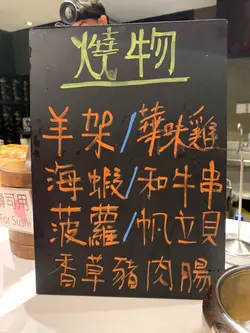 燒物
羊架/葉味雞
海蝦/和牛串
菠蘿/帆立貝
香草豬肉腸
可用
For Sushi